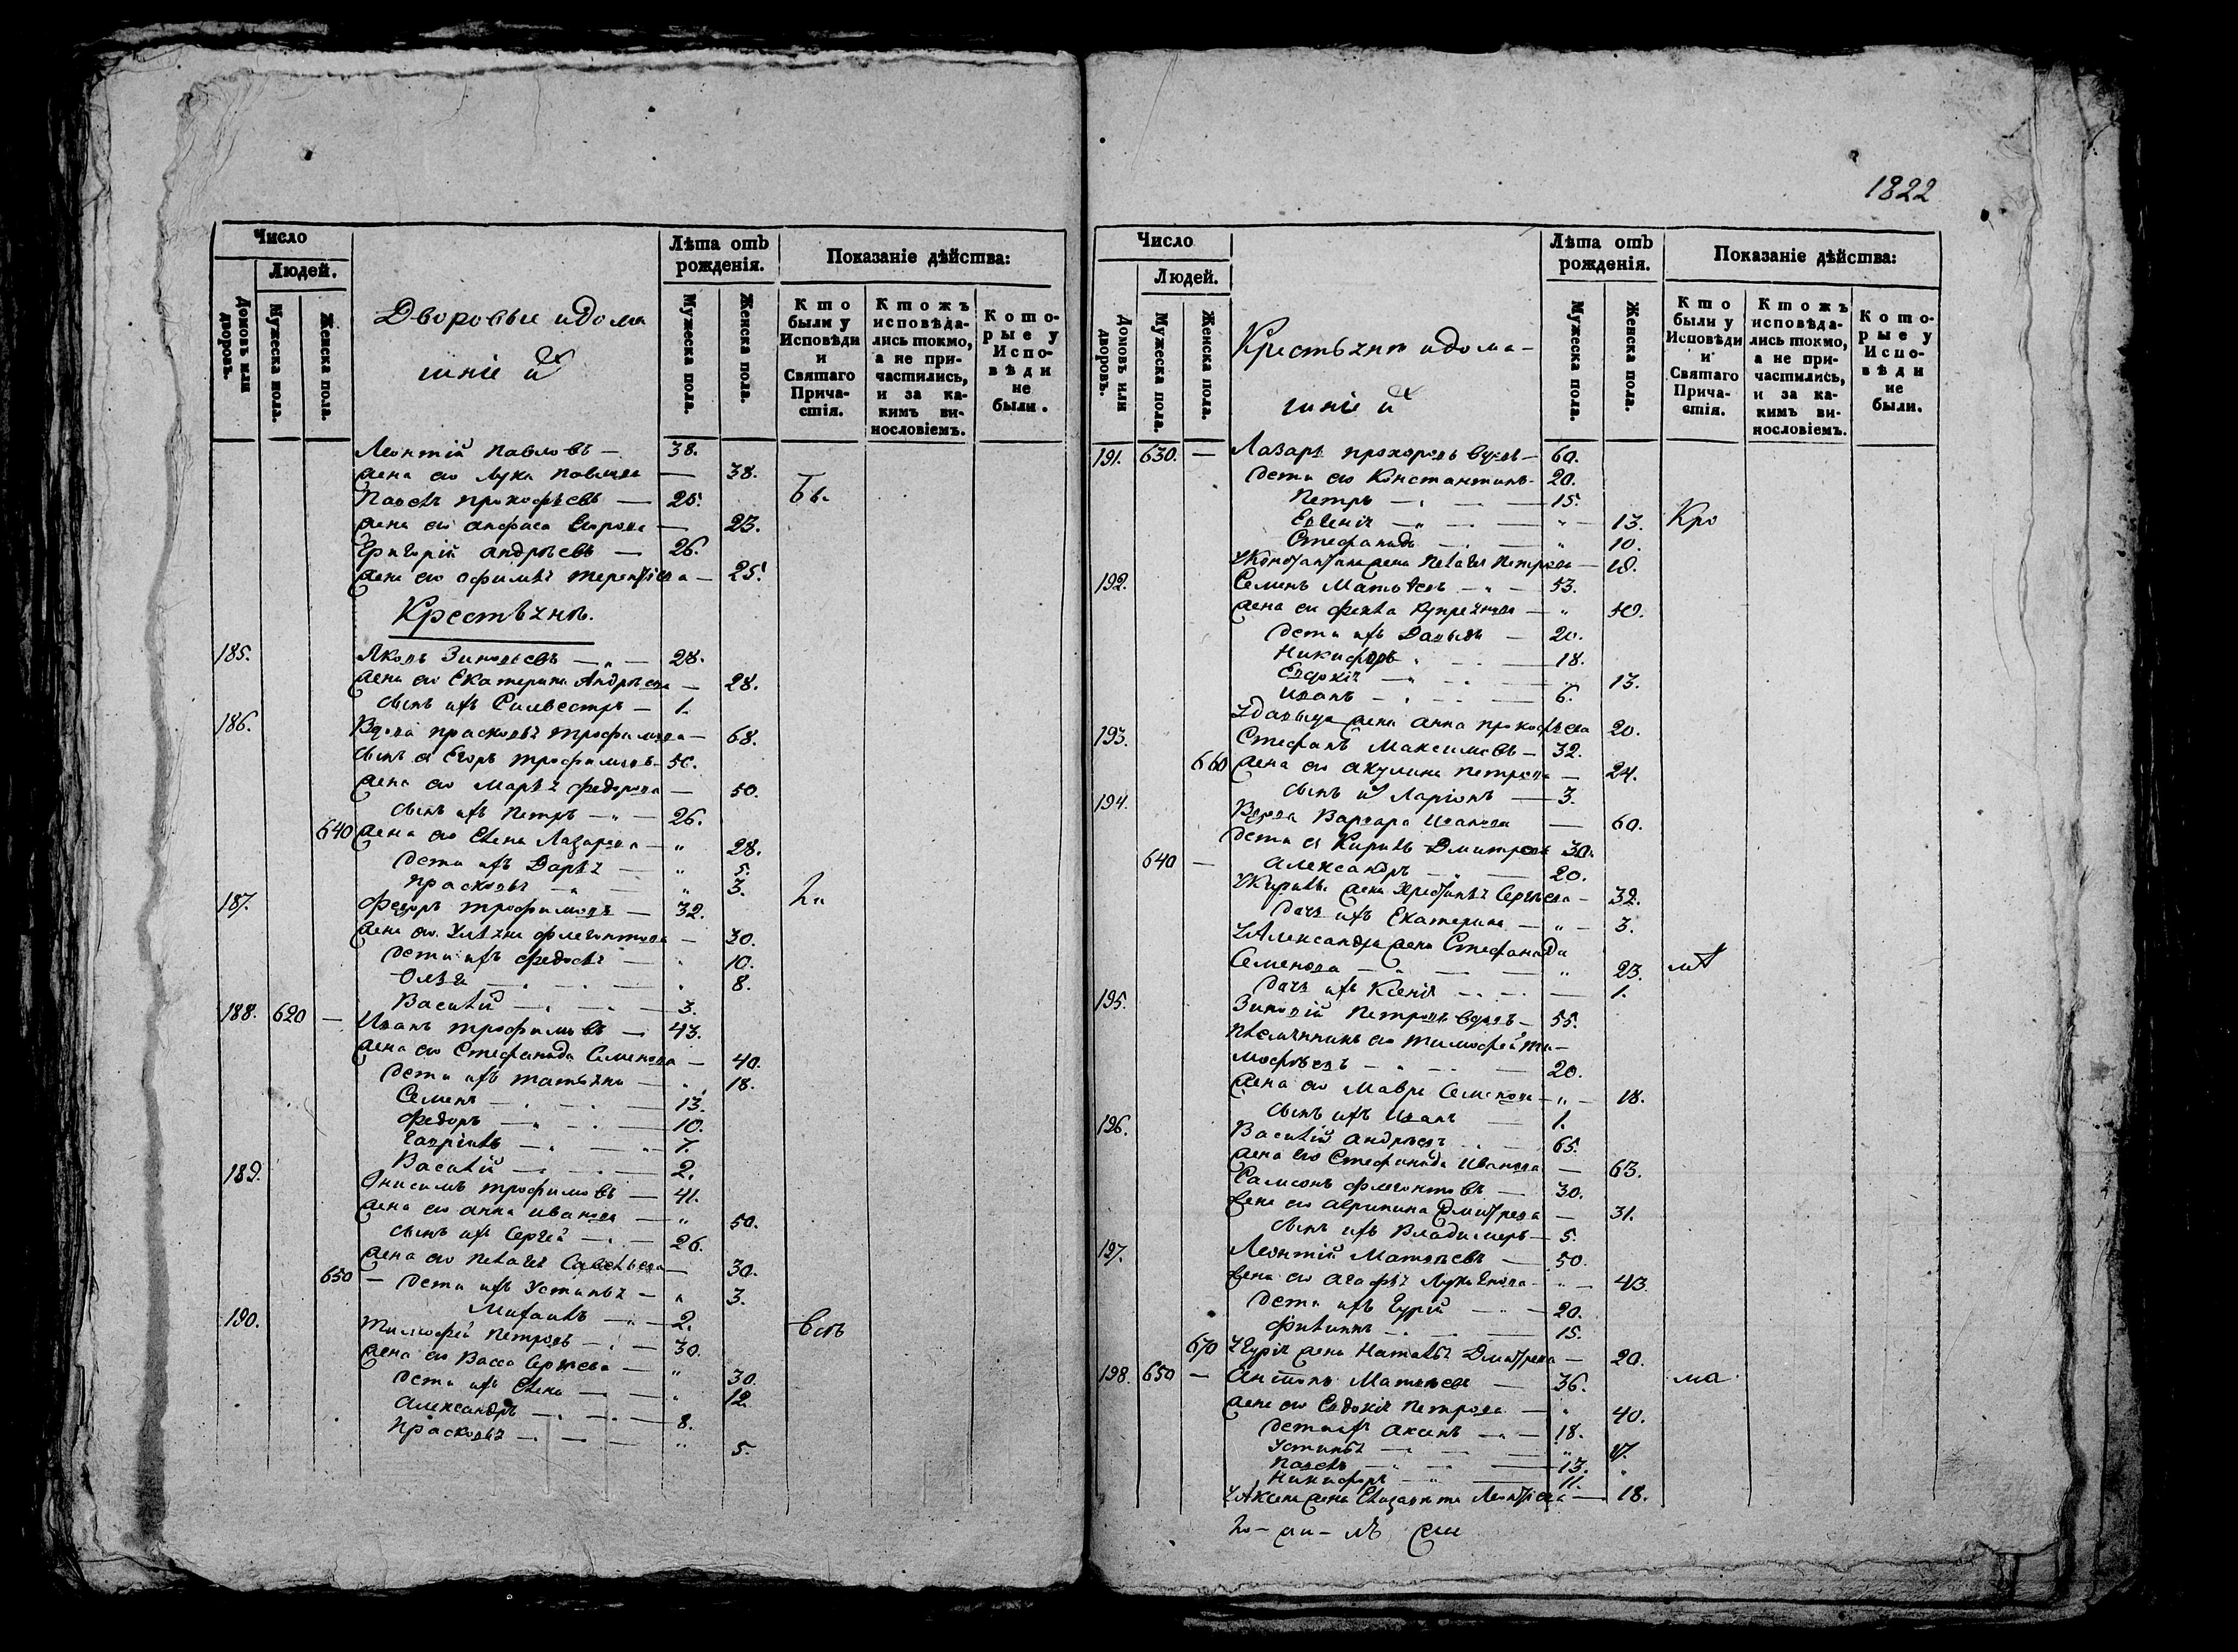 1822
Число
Людей.
Домовъ или дворовъ.
Мужеска пола.
Женска пола.
Дворовые и дома
шніе их
Лѣта отъ рожденія.
Мужеска пола.
Женска пола.
Показаніе дѣйства:
Кто были у Исповѣди и Святаго Прича-стія.
Ктожъ исповѣда-лись токмо, а не при-частились, и за ка-кимъ ви-нословіемъ.
Кото-рые у Испо-вѣди не были.
Леонтій Павловъ — 38.
жена его Лукія Павлова — 38.
Павелъ Прокофьевъ — 25.
жена его Анфиса Егорова — 23.
Григорій Андреевъ — 26.
жена его Офимья Терентіева — 25.
Крестьяне.
185. Яковъ Зиновьевъ — 28.
жена его Екатерина Андреева — 28.
сынъ ихъ Силвестръ — 1.
186. Вдова Прасковья Трофимова — 68.
сынъ ея Егоръ Трофимовъ — 50.
жена его Марья Федорова — 50.
сынъ ихъ Петръ — 26.
640 жена его Елена Лазарева — 28.
дети ихъ Дарья — 5.
Прасковья — 3.
187. Федоръ Трофимовъ — 32.
жена его Ульяна Флегонтова — 30.
дети ихъ Федосья — 10.
Ольга — 8.
Василій — 3.
188. 620 — Иванъ Трофимовъ — 43.
жена его Стефанида Семенова — 40.
дети ихъ Татьяна — 18.
Семенъ — 13.
Федоръ — 10.
Гавріилъ — 7.
Василій — 2.
189. Онисимъ Трофимовъ — 41.
жена его Анна Иванова — 50.
сынъ ихъ Сергей — 26.
жена его Пелагея Савельева — 30.
650 — дети ихъ Устинья — 3.
Михаилъ — 2.
190. Тимофей Петровъ — 30.
жена его Васса Сергеева — 30.
дети ихъ Елена — 12.
Александръ — 8.
Прасковья — 5.
всѣ
Число
Людей.
Домовъ или дворовъ.
Мужеска пола.
Женска пола.
Крестьяне и дома-
шніе их
Лѣта отъ рожденія.
Мужеска пола.
Женска пола.
Показаніе дѣйства:
Кто были у Исповѣди и Святаго Прича-стія.
Ктожъ исповѣда-лись токмо, а не при-частились, и за ка-кимъ ви-нословіемъ.
Кото-рые у Испо-вѣди не были.
191. 630. — Лазарь Прохоровъ вдовъ — 60.
дети его Константинъ — 20.
Петръ — 15.
Евгенія — 13. Кро
Стефанида — 10.
У Константина жена Пелагея Петрова — 18.
192. Семенъ Матвѣевъ — 53.
жена его Фекла Куприянова — 50.
дети ихъ Давыдъ — 20.
Никифоръ — 18.
Евдокія — 13.
Иванъ — 6.
У Давыда жена Анна Прокофьева 20.
193. Стефанъ Максимовъ — 32.
660 жена его Акулина Петрова — 24.
сынъ их Ларіонъ — 3.
194. Вдова Варвара Иванова — 60.
дети ея Кирилъ Дмитревъ 30.
640 — Александръ — 20.
У Кирилы жена Христинья Сергеева — 32.
дочь ихъ Екатерина — 3.
У Александра жена Стефанида
Семенова — 23.
дочь ихъ Ксенія — 1.
195. Зиновій Петровъ вдовъ — 55.
племянникъ его Тимофей Ти-
мофеевъ — 20.
жена его Мавра Семенова — 18.
сынъ ихъ Иванъ — 1.
196. Василій Андреевъ — 65.
жена его Стефанида Иванова — 63.
Самсонъ Флегонтовъ — 30.
жена его Агрипина Дмитрева — 31.
сынъ ихъ Владимеръ — 5.
197. Леонтій Матвѣевъ — 50.
жена его Агафья — 43.
дети ихъ Гурій — 20.
Филипъ — 15.
670 У Гурія жена Наталья Дмитрева — 20.
198. 650 — Антонъ Матвѣевъ — 36. ма
жена его Евдокія Петрова — 40.
дети ихъ Акимъ — 18.
Устинья — 17.
Павелъ — 13.
Никифоръ — 11.
У Акима жена Елизавета Леонтіева — 18.